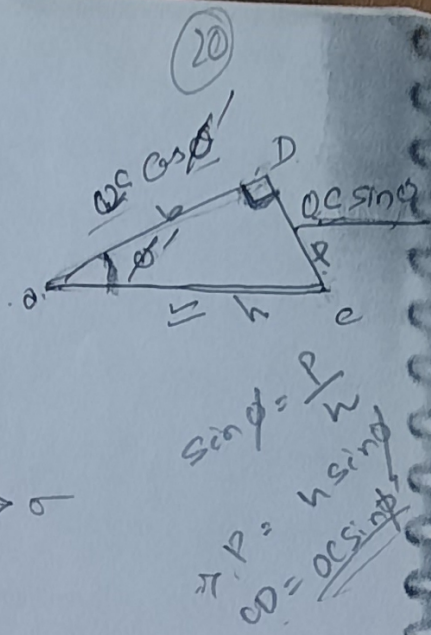 20
D
ac cosφ'
b
OC sinφ
φ'
P
a
h
c
sinφ = P/h
∴ P = h sinφ
CD = OC sinφ'
→ σ